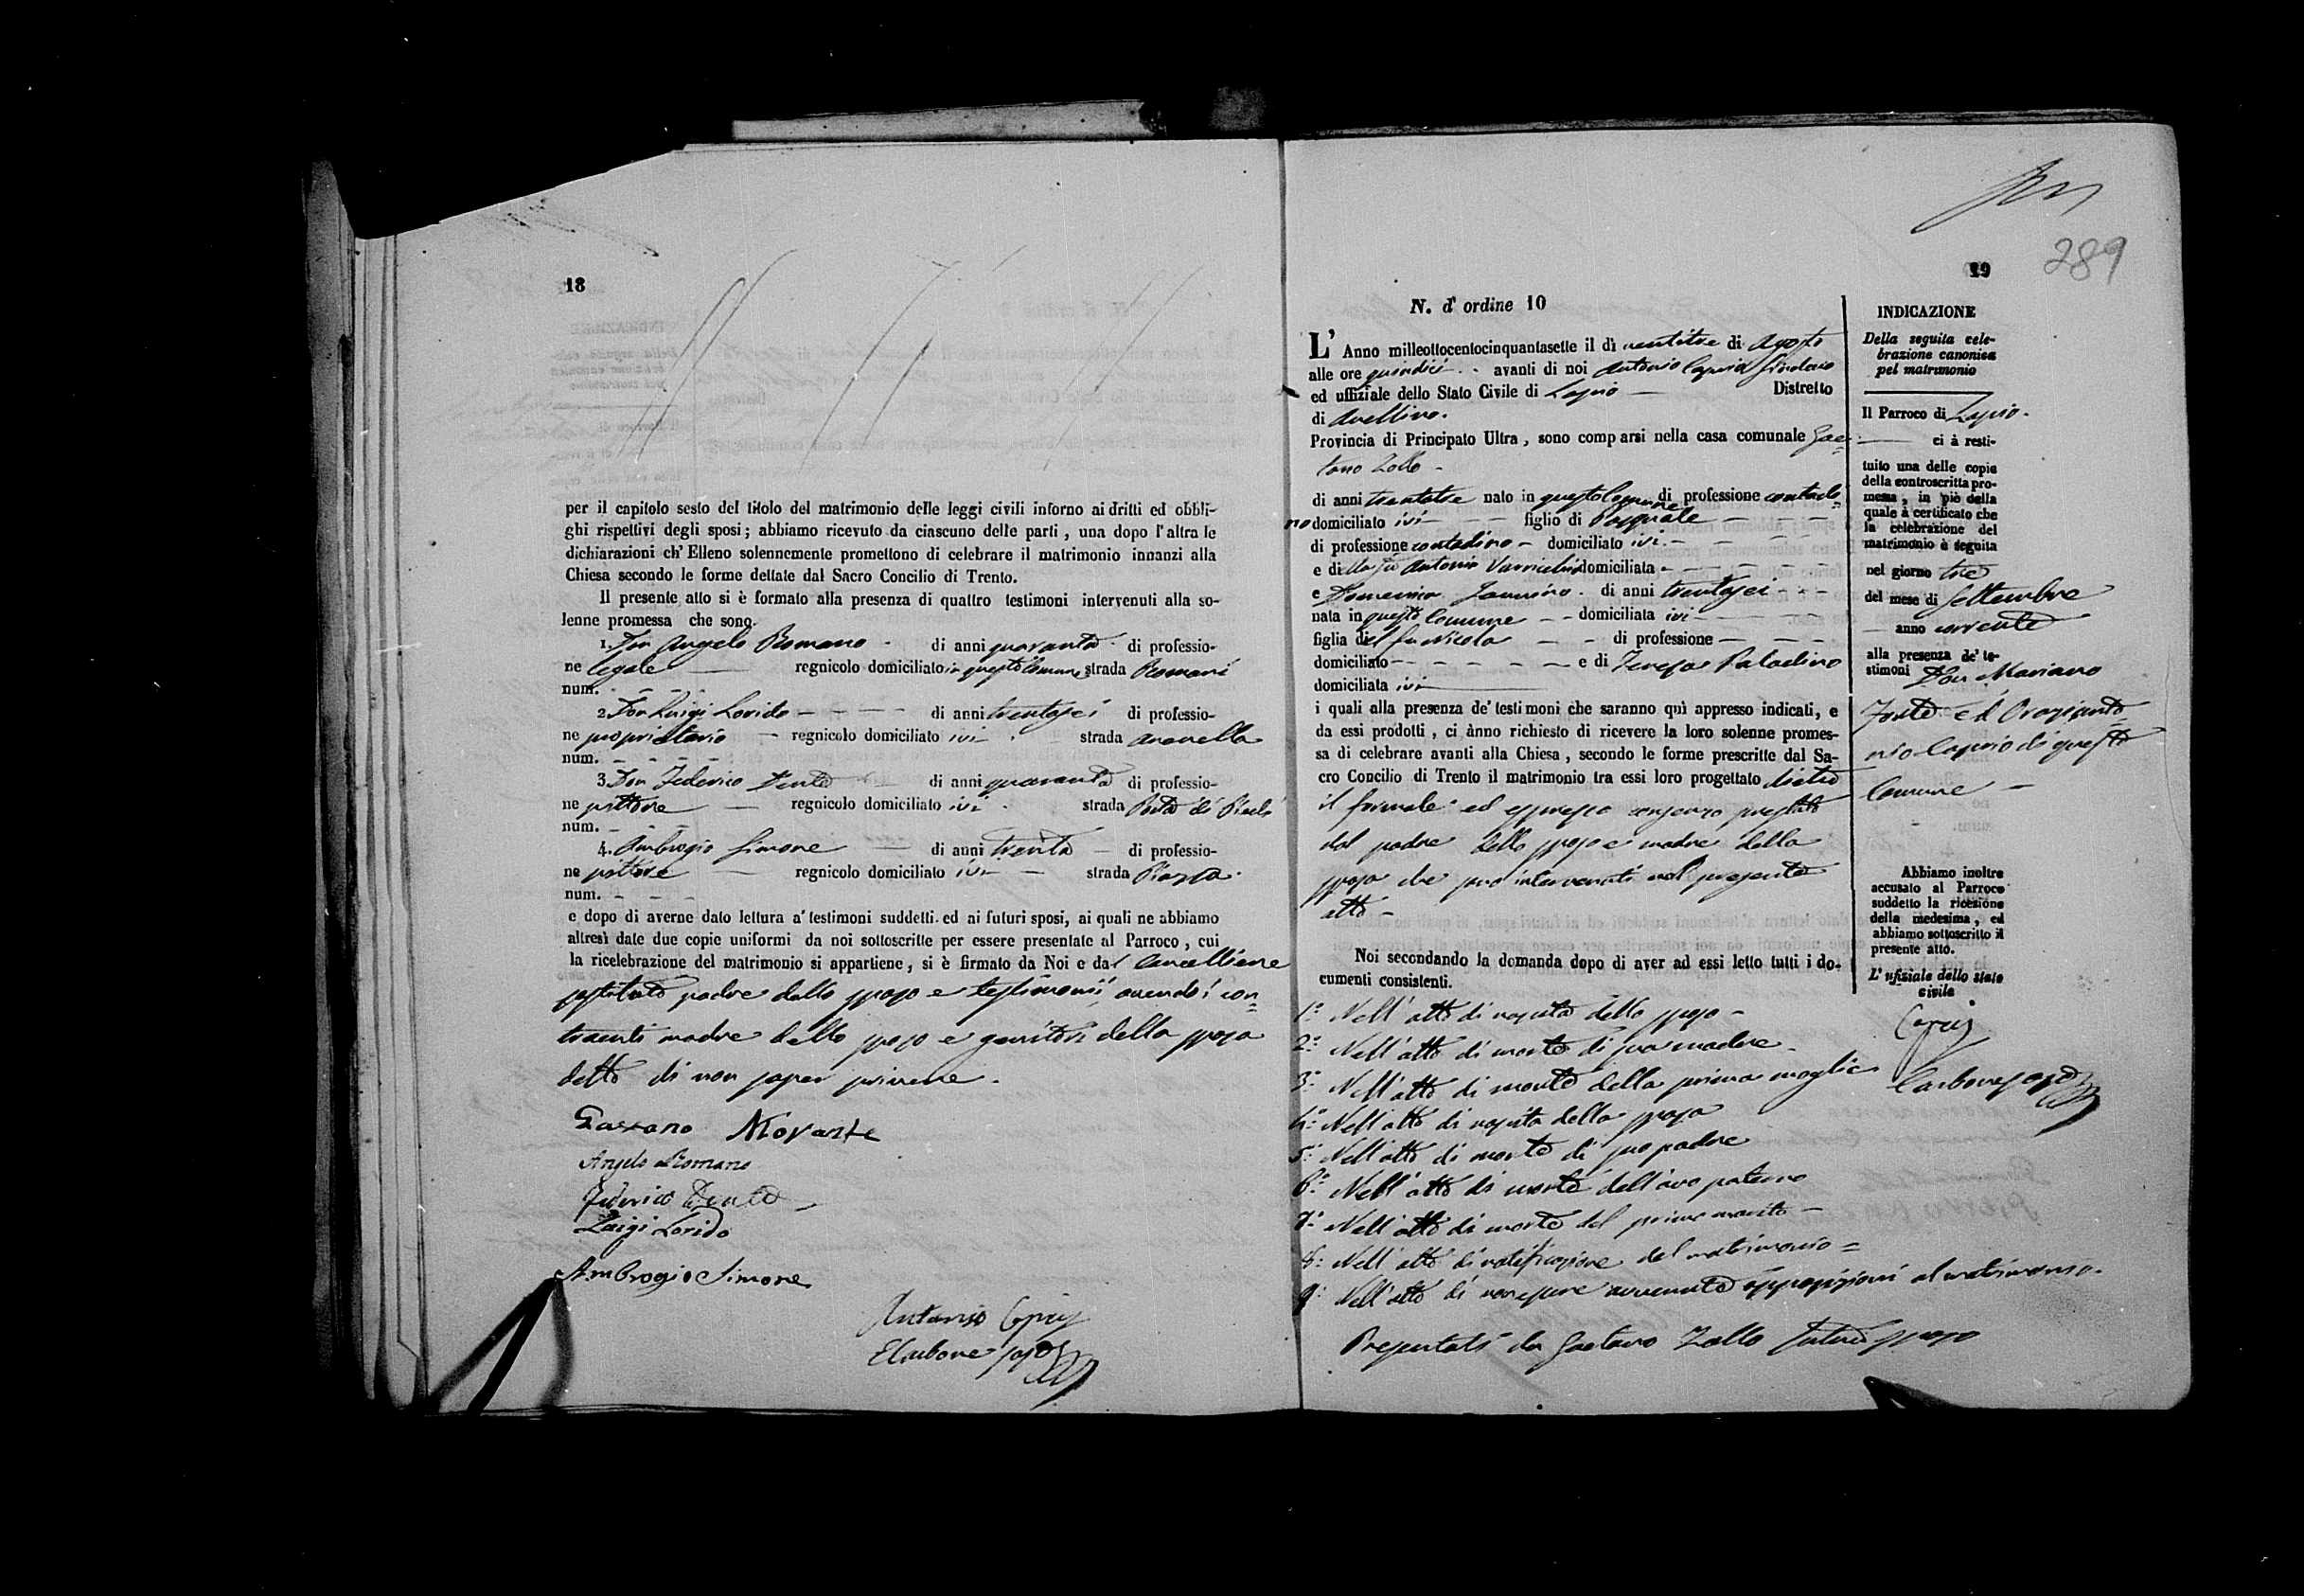 18
per il capitolo sesto del titolo del matrimonio delle leggi civili intorno ai dritti ed obbli-
ghi rispettivi degli sposi; abbiamo ricevuto da ciascuno delle parti, una dopo l'altra le
dichiarazioni ch'Elleno solennemente promettono di celebrare il matrimonio innanzi alla
Chiesa secondo le forme dettate dal Sacro Concilio di Trento.
Il presente atto si è formato alla presenza di quattro testimoni intervenuti alla so-
lenne promessa che sono.
1. Don Angelo Romano - di anni quaranta di professio-
ne legale — regnicolo domiciliato in questo Comune strada Romani
num. - - -
2 Don Luigi Lorido - - - - di anni trentasei di professio-
ne proprietario - regnicolo domiciliato ivi - strada
num. - - - -
3. Don Federico Dente - di anni quaranta di professio-
ne pittore — regnicolo domiciliato ivi - strada
num. - - -
4. Ambrogio Simone — di anni trenta - di professio-
ne pittore — regnicolo domiciliato ivi - strada Piazza.
num. - - -
e dopo di averne dato lettura a' testimoni suddetti ed ai futuri sposi, ai quali ne abbiamo
altresì date due copie uniformi da noi sottoscritte per essere presentate al Parroco, cui
la ricelebrazione del matrimonio si appartiene, si è firmato da Noi e dal Cancelliere
sostituto padre dello sposo e testimonii avendo i con=
traenti madre dello sposo e genitori della sposa
detto di non saper scrivere.
Angelo Romano
Federico Dente
Luigi Lorido
Ambrogio Simone
Antonio
289
19
N. d'ordine 10
L'Anno milleottocentocinquantasette il dì ventitre di Agosto
alle ore quindici - - avanti di noi Antonio Caprio Sindaco
ed uffiziale dello Stato Civile di Lapio — Distretto
di Avellino.
Provincia di Principato Ultra, sono comparsi nella casa comunale Gae=
tano Zollo -
di anni trentatre nato in questo Comune di professione contadi=
no domiciliato ivi - - - figlio di Pasquale - - -
di professione contadino - domiciliato ivi - - - -
e della fu Antonia domiciliata - - - - -
e Domenica di anni trentasei - - -
nata in questo Comune - - domiciliata ivi - - -
figlia del fu Nicola - - di professione - - -
domiciliato - - - - - - e di Teresa Paladino
domiciliata ivi —
i quali alla presenza de' testimoni che saranno quì appresso indicati, e
da essi prodotti, ci ànno richiesto di ricevere la loro solenne promes-
sa di celebrare avanti alla Chiesa, secondo le forme prescritte dal Sa-
cro Concilio di Trento il matrimonio tra essi loro progettato dietro
il formale ed espresso consenso prestato
dal padre dello sposo e madre della
sposa che sono intervenuti nel presente
atto -
Noi secondando la domanda dopo di aver ad essi letto tutti i do-
cumenti consistenti.
1º Nell'atto di nascita dello sposo -
2º Nell'atto di morte di sua madre -
3º Nell'atto di morte della prima moglie
4º Nell'atto di nascita della sposa
5º Nell'atto di morte di suo padre
6º Nell'atto di morte dell'avo paterno
7º Nell'atto di morte del primo marito -
8º Nell'atto di notificazione del matrimonio =
9º Nell'atto di non essere avvenute opposizioni al matrimonio.
Presentati da Gaetano Zollo futuro sposo
INDICAZIONE
Della seguita cele-
brazione canonica
pel matrimonio
Il Parroco di Lapio.
— ci à resti-
tuito una delle copie
della controscritta pro-
messa, in piè della
quale à certificato che
la celebrazione del
matrimonio è seguita
nel giorno tre
del mese di Settembre
— anno corrente
alla presenza de' te-
stimoni Don Mariano
Forte ed Oraziantó
nio Caprio di questo
Comune -
Abbiamo inoltre
accusato al Parroco
suddetto la ricezione
della medesima, ed
abbiamo sottoscritto il
presente atto.
L'ufiziale dello stato
civile